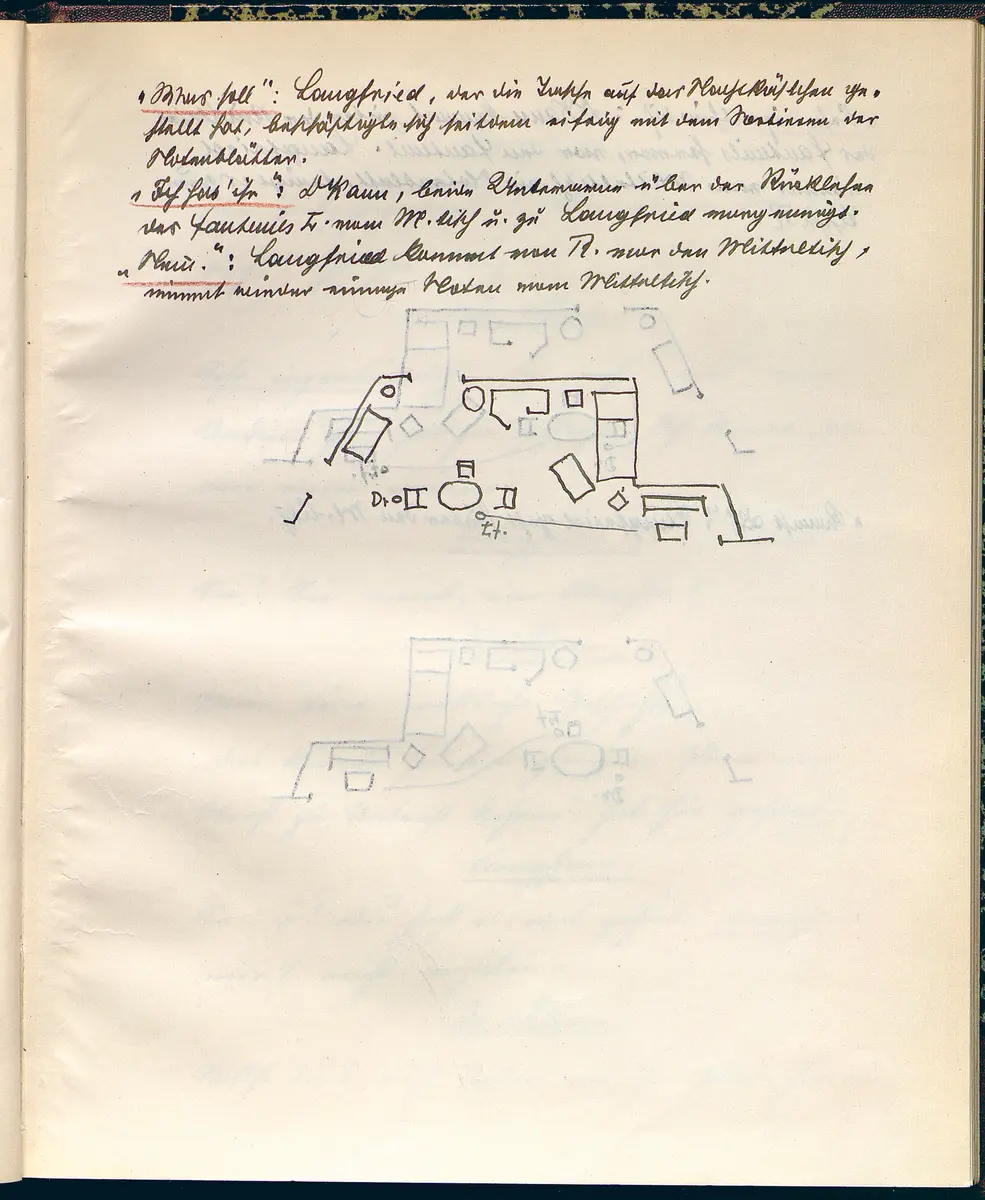 „Was soll": Langfried, der die Tasche auf das Nachtkästchen ge-
stellt hat, beschäftigte sich seitdem eifrig mit dem Sortieren der
Notenblätter.
„Ich hab' ihr": beide Unterarme über der Rücklehne
des Fauteuils L. vom M.tisch u. zu Langfried
„Nein.": Langfried kommt von R. vor den Mitteltisch,
nimmt wieder einige Noten vom Mitteltisch.
Dr
Lf.